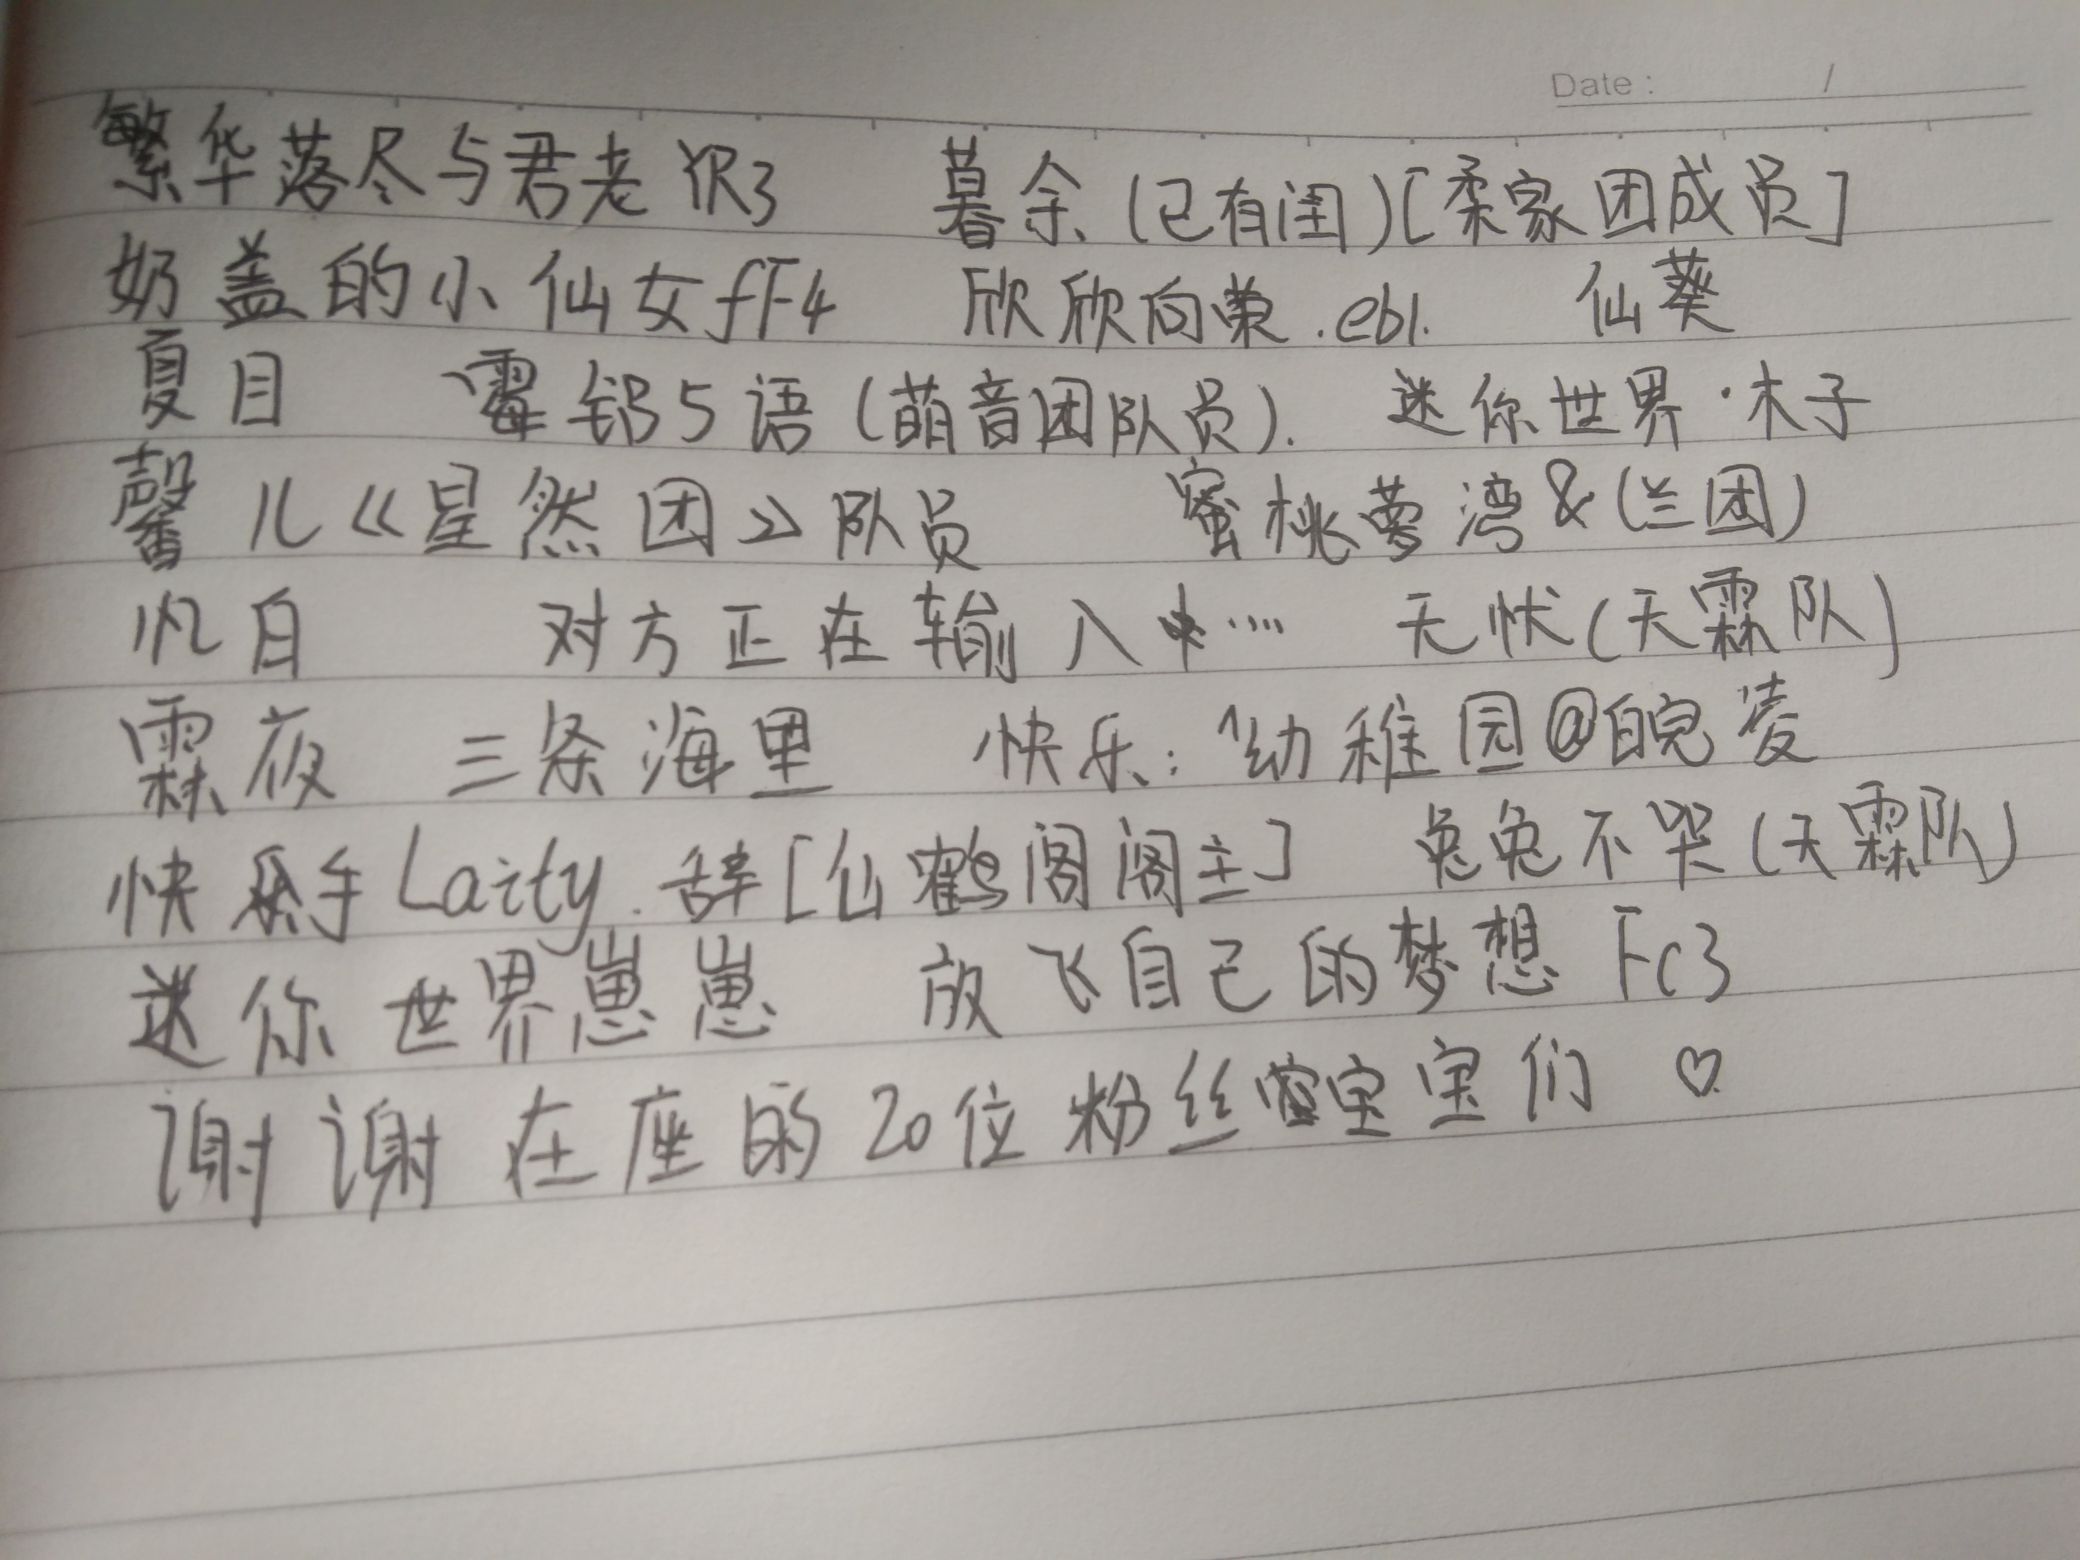 Date : /
繁华落尽与君老YR3 暮余(已有闺)[柔家团成员]
奶盖的小仙女fF4 欣欣向荣.ebl. 仙葵
夏目 霉锅5语(萌音团队员). 迷你世界·木子
馨儿《星然团》队员 蜜桃萝湾&(兰团)
忛白 对方正在输入中… 无忧(天霖队)
霖夜 三条海里 快乐:^幼稚园@皖凌
快乐手Laity.辞[仙鹤阁阁主] 兔兔不哭(天霖队)
迷你世界崽崽 放飞自己的梦想Fc3
谢谢在座的20位粉丝宝宝们♡